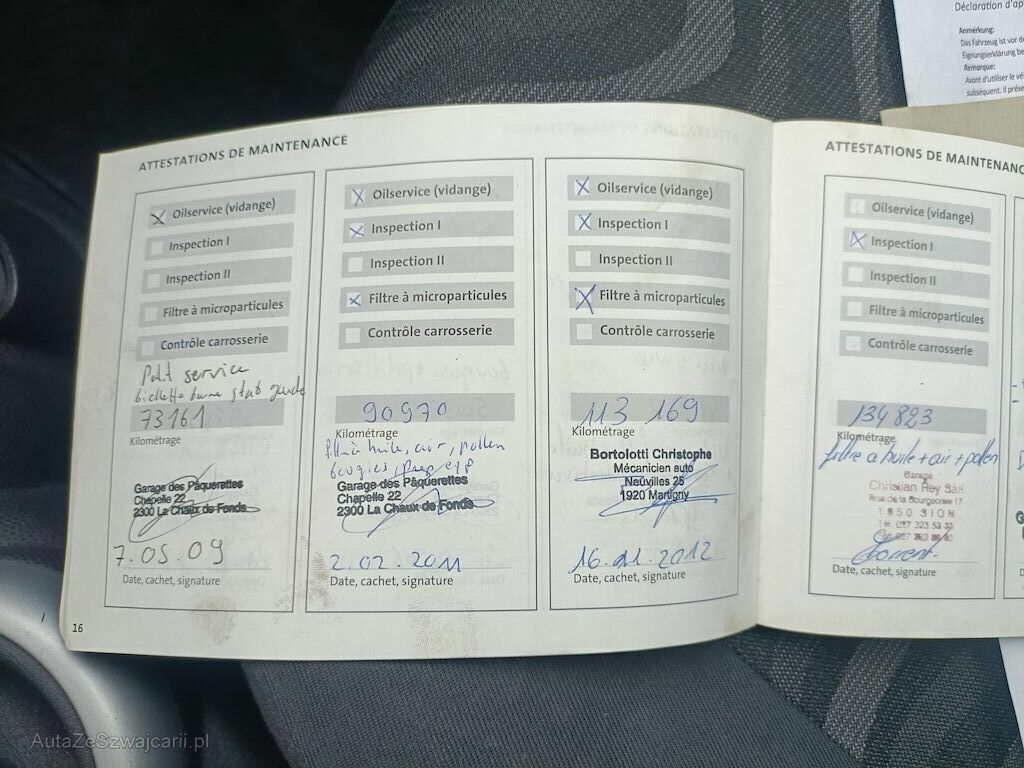 Déclaration d'ap
Anmerkung:
Das Fahrzeug ist vor de
Eignungserklärung be
Remarque:
Avant d'utiliser le vé
subséquent. Il prése
ATTESTATIONS DE MAINTENANCE
Oilservice (vidange)
Inspection I
Inspection II
Filtre à microparticules
Contrôle carrosserie
Petit service
biellette barre stab gauche
73161
Kilométrage
Garage des Pâquerettes
Chapelle 22
2300 La Chaux-de-Fonds
7.05.09
Date, cachet, signature
16
Oilservice (vidange)
Inspection I
Inspection II
Filtre à microparticules
Contrôle carrosserie
90970
Kilométrage
filtre à huile, air, pollen
bougies, Prep exp
Garage des Pâquerettes
Chapelle 22
2300 La Chaux-de-Fonds
2.02.2011
Date, cachet, signature
Oilservice (vidange)
Inspection I
Inspection II
Filtre à microparticules
Contrôle carrosserie
113 169
Kilométrage
Bortolotti Christophe
Mécanicien auto
Neuvilles 25
1920 Martigny
Date, cachet, signature
ATTESTATIONS DE MAINTENANC
Oilservice (vidange)
Inspection I
Inspection II
Filtre à microparticules
Contrôle carrosserie
134 823
Kilométrage
filtre à huile + air + pollen
Garage
Christian Rey Sàrl
Rue de la Bourgeoisie 17
1950 SION
Tél. 027 323 53 33
Date, cachet, signature
AutaZeSzwajcarii.pl